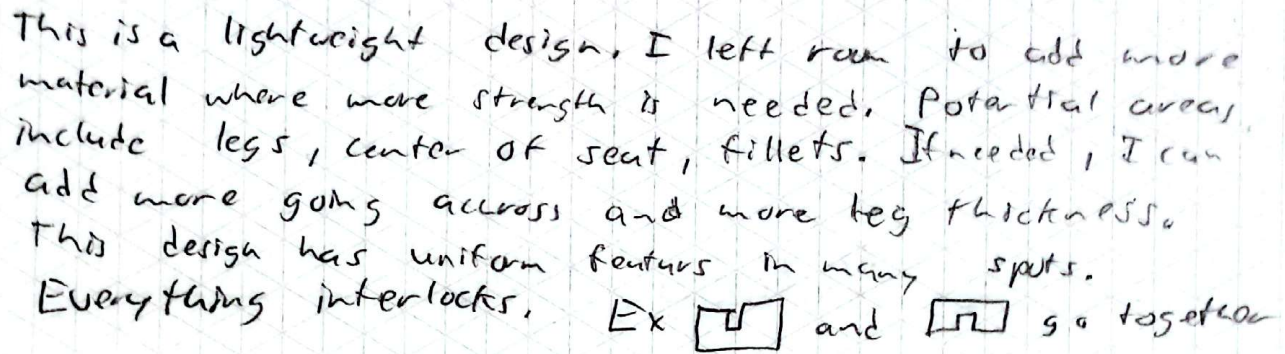 This is a lightweight design. I left room to add more
material where more strength is needed. Potential areas
include legs, center of seat, fillets. If needed, I can
add more going accross and more leg thickness.
This design has uniform featurs in many spots.
Everything interlocks. Ex and go together